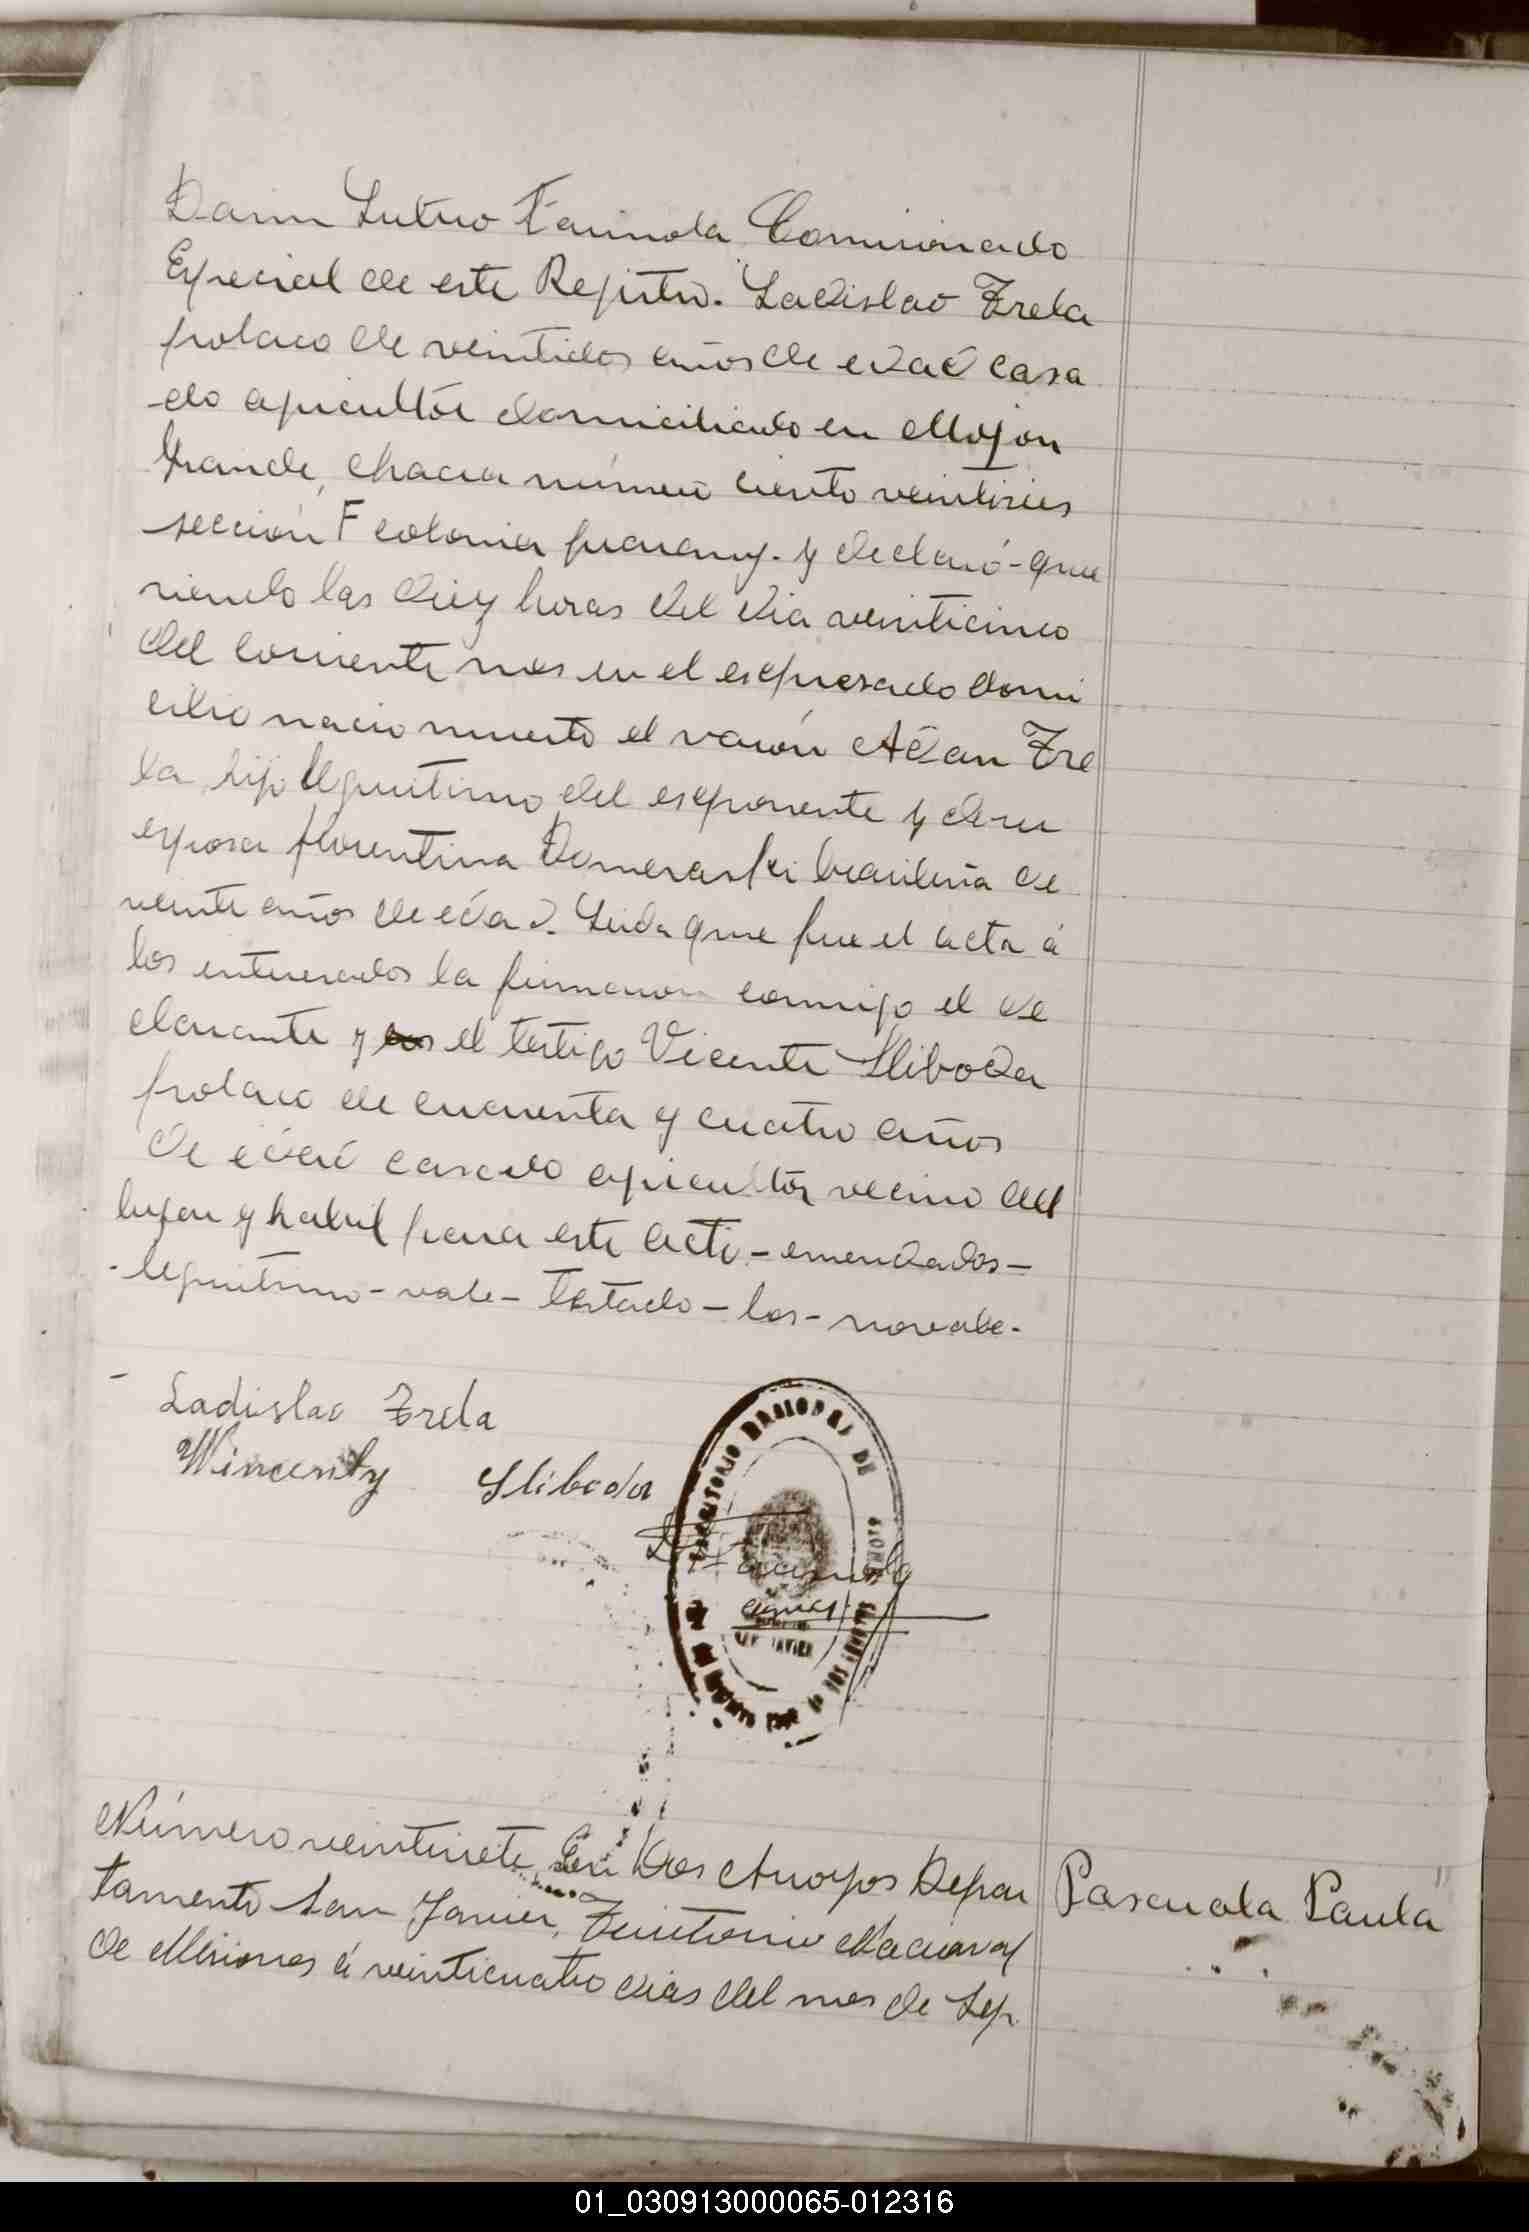 Darin Lutero Farinola Comisionado
Especial de este Rejistro. Ladislao Zrela
polaco de veintidos años de edad casa
do agricultor domiciliado en Mojon
Grande, chacra número ciento veintiseis
sección F colonia guarany. y declaró - que
siendo las diez horas del dia veinticinco
del corriente mes en el espresado domi
cilio nacio muerto el varón Adan Zre
la hijo legitimo del esponente y de su
esposa florentina Domeraski brasileña de
veinte años de edad. Leida que fue el acta á
los interesados la firmaron conmigo el de
clarante y los el testigo Vicente Sliboda
polaco de cuarenta y cuatro años
de edad casado agricultor vecino del
lugar y habil para este acto - emendados -
- legitimo - vale - testado - los - no vale -
- Ladislao Zrela
Wincenty Sliboda
TERRITORIO NACIONAL DE
Número veintisiete En Tres Arroyos Depar
Pascuala Paula
tamento San Javier, Territorio Nacional
de Misiones á veinticuatro dias del mes de Sep
01_030913000065-012316